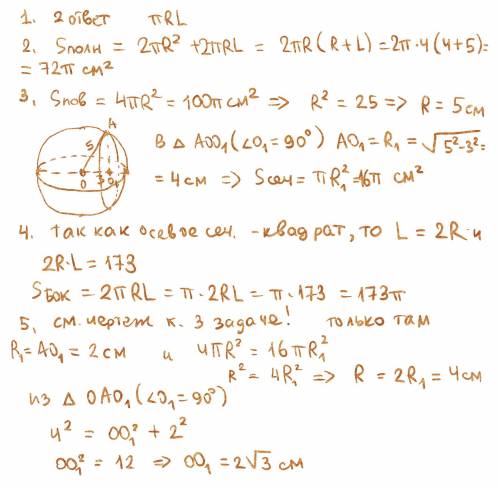 1. 2 ответ πRL
2. Sполн = 2πR² + 2πRL = 2πR(R+L) = 2π·4(4+5)=
= 72π см²
3. Sпов = 4πR² = 100π см² => R² = 25 => R = 5см
A
5
O 3 O₁
В △ AOO₁ (∠O₁ = 90°) AO₁ = R₁ = √5²-3² =
= 4см => Sсеч = πR₁² = 16π см²
4. так как осевое сеч. - квадрат, то L = 2R и
2R·L = 173
Sбок = 2πRL = π·2RL = π·173 = 173π
5. см. чертеж к. 3 задаче! только там
R₁ = AO₁ = 2см и 4πR² = 16πR₁²
R² = 4R₁² => R = 2R₁ = 4см
из △ OAO₁ (∠O₁ = 90°)
4² = OO₁² + 2²
OO₁² = 12 => OO₁ = 2√3 см